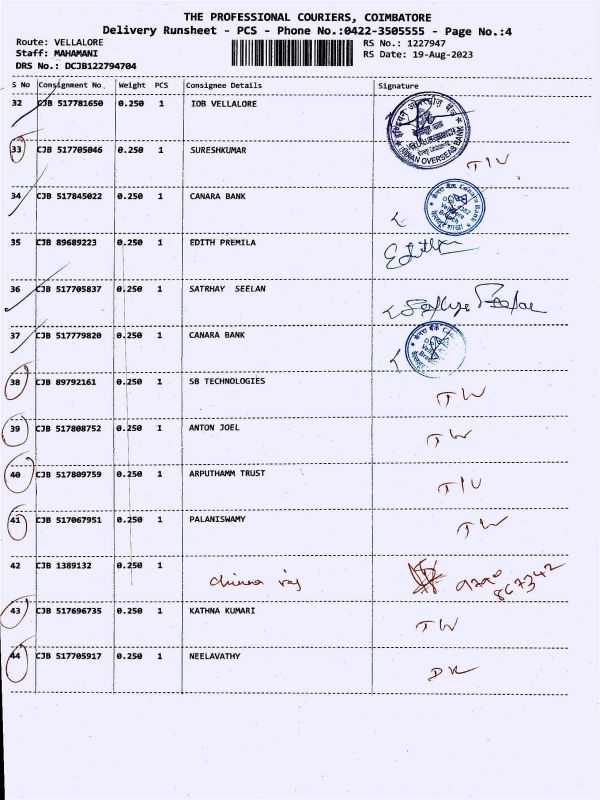 THE PROFESSIONAL COURIERS, COIMBATORE
Delivery Runsheet - PCS - Phone No.:0422-3505555 - Page No.:4
Route: VELLALORE RS No.: 1227947
Staff: MAHAMANI RS Date: 19-Aug-2023
DRS No.: DCJB122794704
S No Consignment No Weight PCS Consignee Details Signature
32 CJB 517781650 0.250 1 IOB VELLALORE
INDIAN OVERSEAS BANK
33 CJB 517705046 0.250 1 SURESHKUMAR
34 CJB 517845022 0.250 1 CANARA BANK
Canara Bank
35 CJB 89689223 0.250 1 EDITH PREMILA
36 CJB 517705837 0.250 1 SATRHAY SEELAN
37 CJB 517779820 0.250 1 CANARA BANK
38 CJB 89792161 0.250 1 SB TECHNOLOGIES TW
39 CJB 517808752 0.250 1 ANTON JOEL TW
40 CJB 517809759 0.250 1 ARPUTHAMM TRUST
41 CJB 517067951 0.250 1 PALANISWAMY TW
42 CJB 1389132 0.250 1 Chinna raj
43 CJB 517696735 0.250 1 KATHNA KUMARI TW
44 CJB 517705917 0.250 1 NEELAVATHY